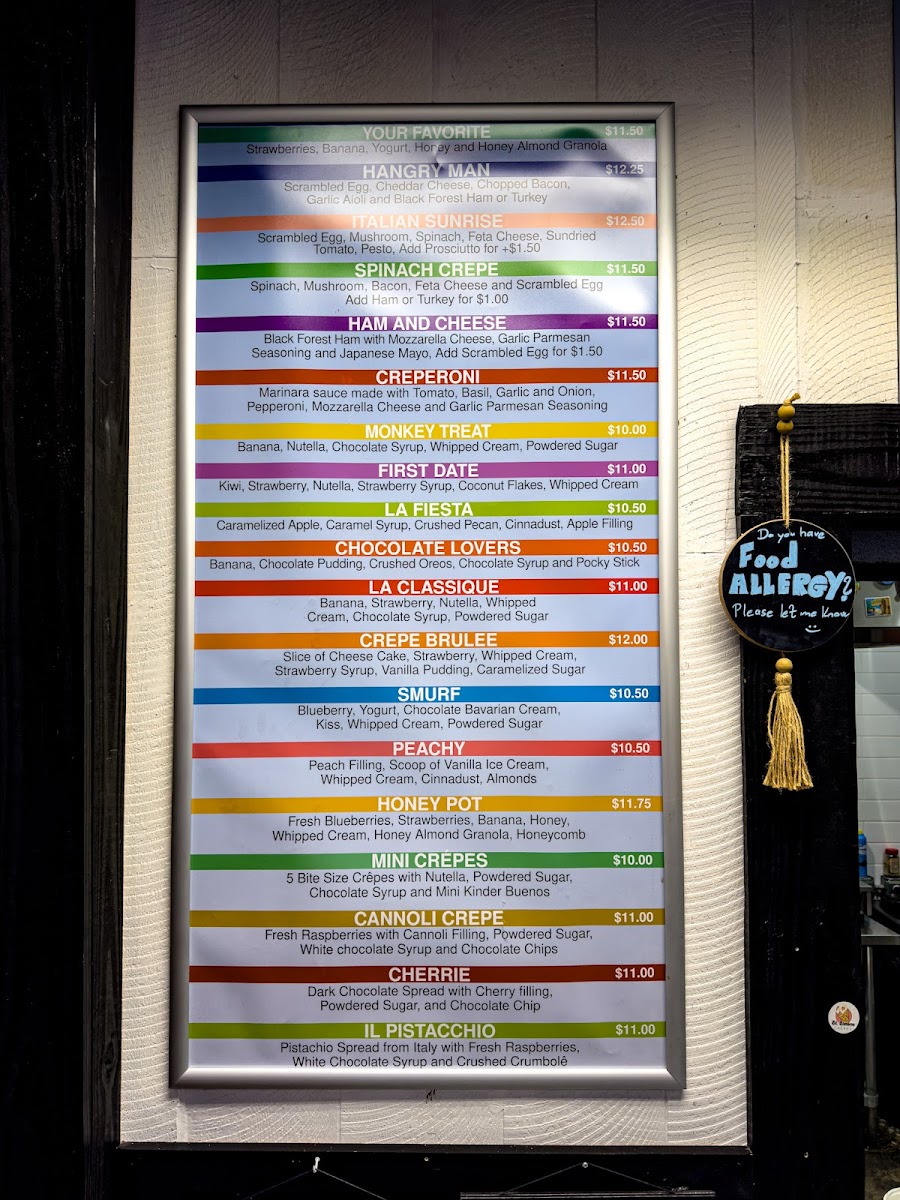 YOUR FAVORITE $11.50
Strawberries, Banana, Yogurt, Honey and Honey Almond Granola
HANGRY MAN $12.25
Scrambled Egg, Cheddar Cheese, Chopped Bacon,
Garlic Aioli and Black Forest Ham or Turkey
ITALIAN SUNRISE $12.50
Scrambled Egg, Mushroom, Spinach, Feta Cheese, Sundried
Tomato, Pesto, Add Prosciutto for +$1.50
SPINACH CREPE $11.50
Spinach, Mushroom, Bacon, Feta Cheese and Scrambled Egg
Add Ham or Turkey for $1.00
HAM AND CHEESE $11.50
Black Forest Ham with Mozzarella Cheese, Garlic Parmesan
Seasoning and Japanese Mayo, Add Scrambled Egg for $1.50
CREPERONI $11.50
Marinara sauce made with Tomato, Basil, Garlic and Onion,
Pepperoni, Mozzarella Cheese and Garlic Parmesan Seasoning
MONKEY TREAT $10.00
Banana, Nutella, Chocolate Syrup, Whipped Cream, Powdered Sugar
FIRST DATE $11.00
Kiwi, Strawberry, Nutella, Strawberry Syrup, Coconut Flakes, Whipped Cream
LA FIESTA $10.50
Caramelized Apple, Caramel Syrup, Crushed Pecan, Cinnadust, Apple Filling
CHOCOLATE LOVERS $10.50
Banana, Chocolate Pudding, Crushed Oreos, Chocolate Syrup and Pocky Stick
LA CLASSIQUE $11.00
Banana, Strawberry, Nutella, Whipped
Cream, Chocolate Syrup, Powdered Sugar
CREPE BRULEE $12.00
Slice of Cheese Cake, Strawberry, Whipped Cream,
Strawberry Syrup, Vanilla Pudding, Caramelized Sugar
SMURF $10.50
Blueberry, Yogurt, Chocolate Bavarian Cream,
Kiss, Whipped Cream, Powdered Sugar
PEACHY $10.50
Peach Filling, Scoop of Vanilla Ice Cream,
Whipped Cream, Cinnadust, Almonds
HONEY POT $11.75
Fresh Blueberries, Strawberries, Banana, Honey,
Whipped Cream, Honey Almond Granola, Honeycomb
MINI CRÉPES $10.00
5 Bite Size Crêpes with Nutella, Powdered Sugar,
Chocolate Syrup and Mini Kinder Buenos
CANNOLI CREPE $11.00
Fresh Raspberries with Cannoli Filling, Powdered Sugar,
White chocolate Syrup and Chocolate Chips
CHERRIE $11.00
Dark Chocolate Spread with Cherry filling,
Powdered Sugar, and Chocolate Chip
IL PISTACCHIO $11.00
Pistachio Spread from Italy with Fresh Raspberries,
White Chocolate Syrup and Crushed Crumbolê
Do you have
Food
ALLERGY?
Please let me know